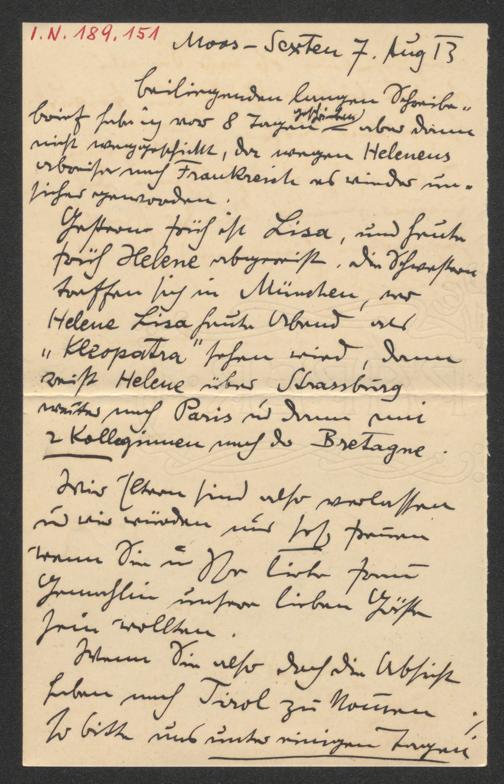 I.N. 189.151
Moos-Sexten 7. Aug 13
beiliegenden langen Schreibe-
brief habe ich vor 8 Tagen geschrieben aber dann
nicht weggeschickt, da wegen Helenens
Abreise nach Frankreich es wieder un-
sicher geworden.
Gestern früh ist Lisa, und heute
früh Helene abgereist. Die Schwestern
treffen sich in München, wo
Helene Lisa heute Abend als
"Kleopatra" sehen wird, dann
reist Helene über Strassburg
weiter nach Paris u dann mit
2 Kolleginnen nach der Bretagne.
Wir Eltern sind also verlassen
u wir würden uns sehr freuen
wenn Sie u Ihre liebe Frau
Gemahlin unsere lieben Gäste
sein wollten.
Wenn Sie also doch die Absicht
haben nach Tirol zu kommen
so bitte uns unter einigen Tagen